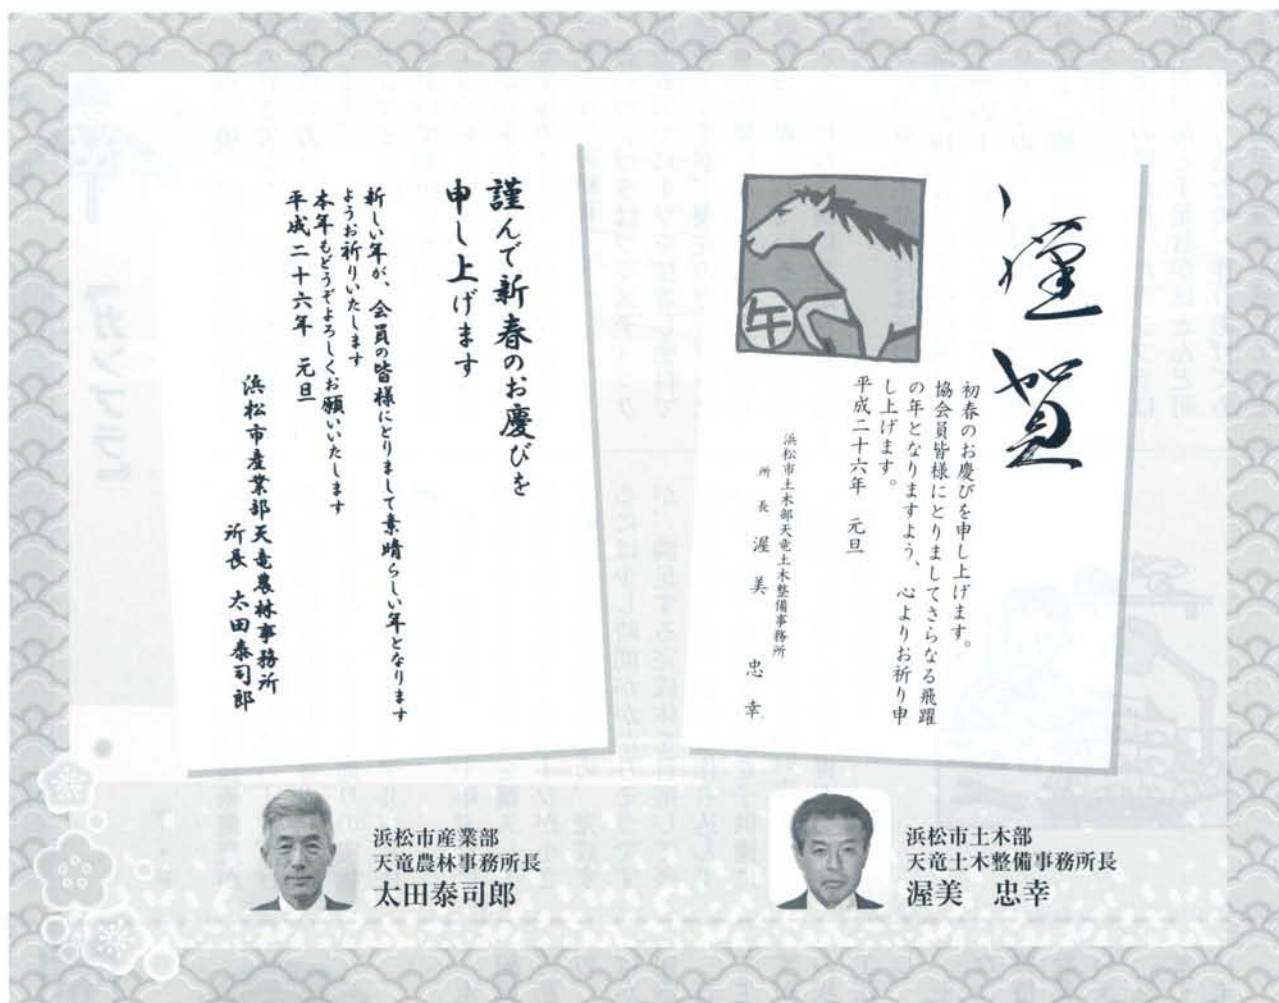 謹賀
午
初春のお慶びを申し上げます。
協会員皆様にとりましてさらなる飛躍
の年となりますよう、心よりお祈り申
し上げます。
平成二十六年 元旦
浜松市土木部天竜土木整備事務所
所長 渥美 忠幸
謹んで新春のお慶びを
申し上げます
新しい年が、会員の皆様にとりまして素晴らしい年となります
ようお祈りいたします
本年もどうぞよろしくお願いいたします
平成二十六年 元旦
浜松市産業部天竜農林事務所
所長 太田泰司郎
浜松市産業部
天竜農林事務所長
太田泰司郎
浜松市土木部
天竜土木整備事務所長
渥美 忠幸